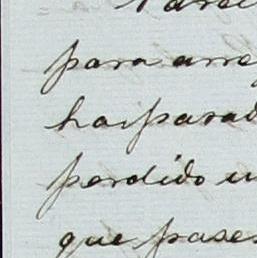 para arre
ha pasad
perdido u
que pases